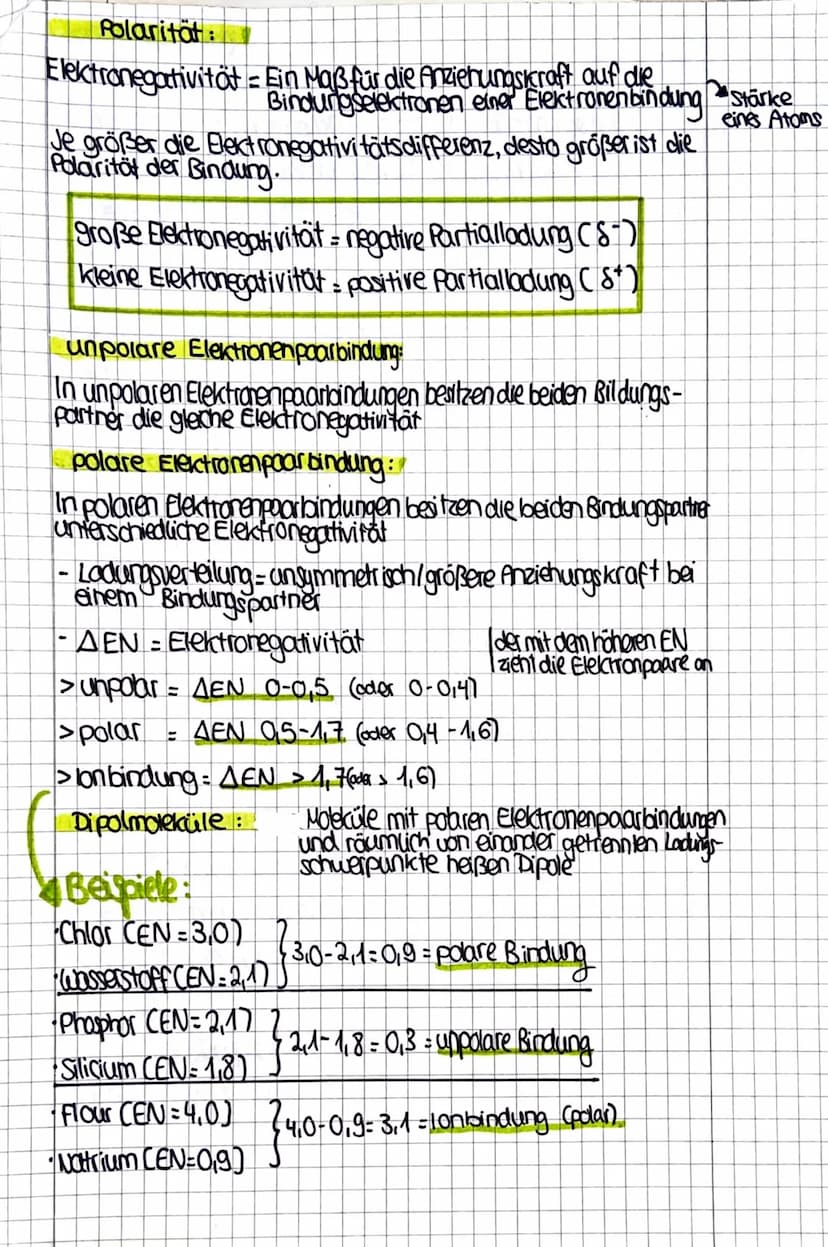 Polarität:
Elektronegativität = Ein Maß für die Anziehungskraft auf die
Bindungselektronen einer Elektronenbindung
Stärke
eines Atoms
Je größer die Elektronegativitätsdifferenz, desto größer ist die
Polarität der Bindung.
große Elektronegativität = negative Partialladung (δ⁻)
kleine Elektronegativität = positive Partialladung (δ⁺)
unpolare Elektronenpaarbindung:
In unpolaren Elektronenpaarbindungen besitzen die beiden Bildungs-
partner die gleiche Elektronegativität
polare Elektronenpaarbindung:
In polaren Elektronenpaarbindungen besitzen die beiden Bindungspartner
unterschiedliche Elektronegativität
- Ladungsverteilung = unsymmetrisch/größere Anziehungskraft bei
einem Bindungspartner
- ΔEN = Elektronegativität
der mit dem höheren EN
zieht die Elektronpaare an
> unpolar = ΔEN 0-0,5 (oder 0-0,4)
> polar = ΔEN 0,5-1,7 (oder 0,4-1,6)
> Ionbindung = ΔEN > 1,7 (oder > 1,6)
Dipolmoleküle: Moleküle mit polaren Elektronenpaarbindungen
und räumlich von einander getrennten Ladungs-
schwerpunkte heißen Dipole
Beispiele:
·Chlor (EN=3,0)
·Wasserstoff (EN=2,1)
3,0-2,1=0,9 = polare Bindung
·Phosphor (EN=2,1)
·Silicium (EN=1,8)
2,1-1,8=0,3 = unpolare Bindung
·Flour (EN=4,0)
·Natrium (EN=0,9)
4,0-0,9=3,1 = Ionbindung (polar)